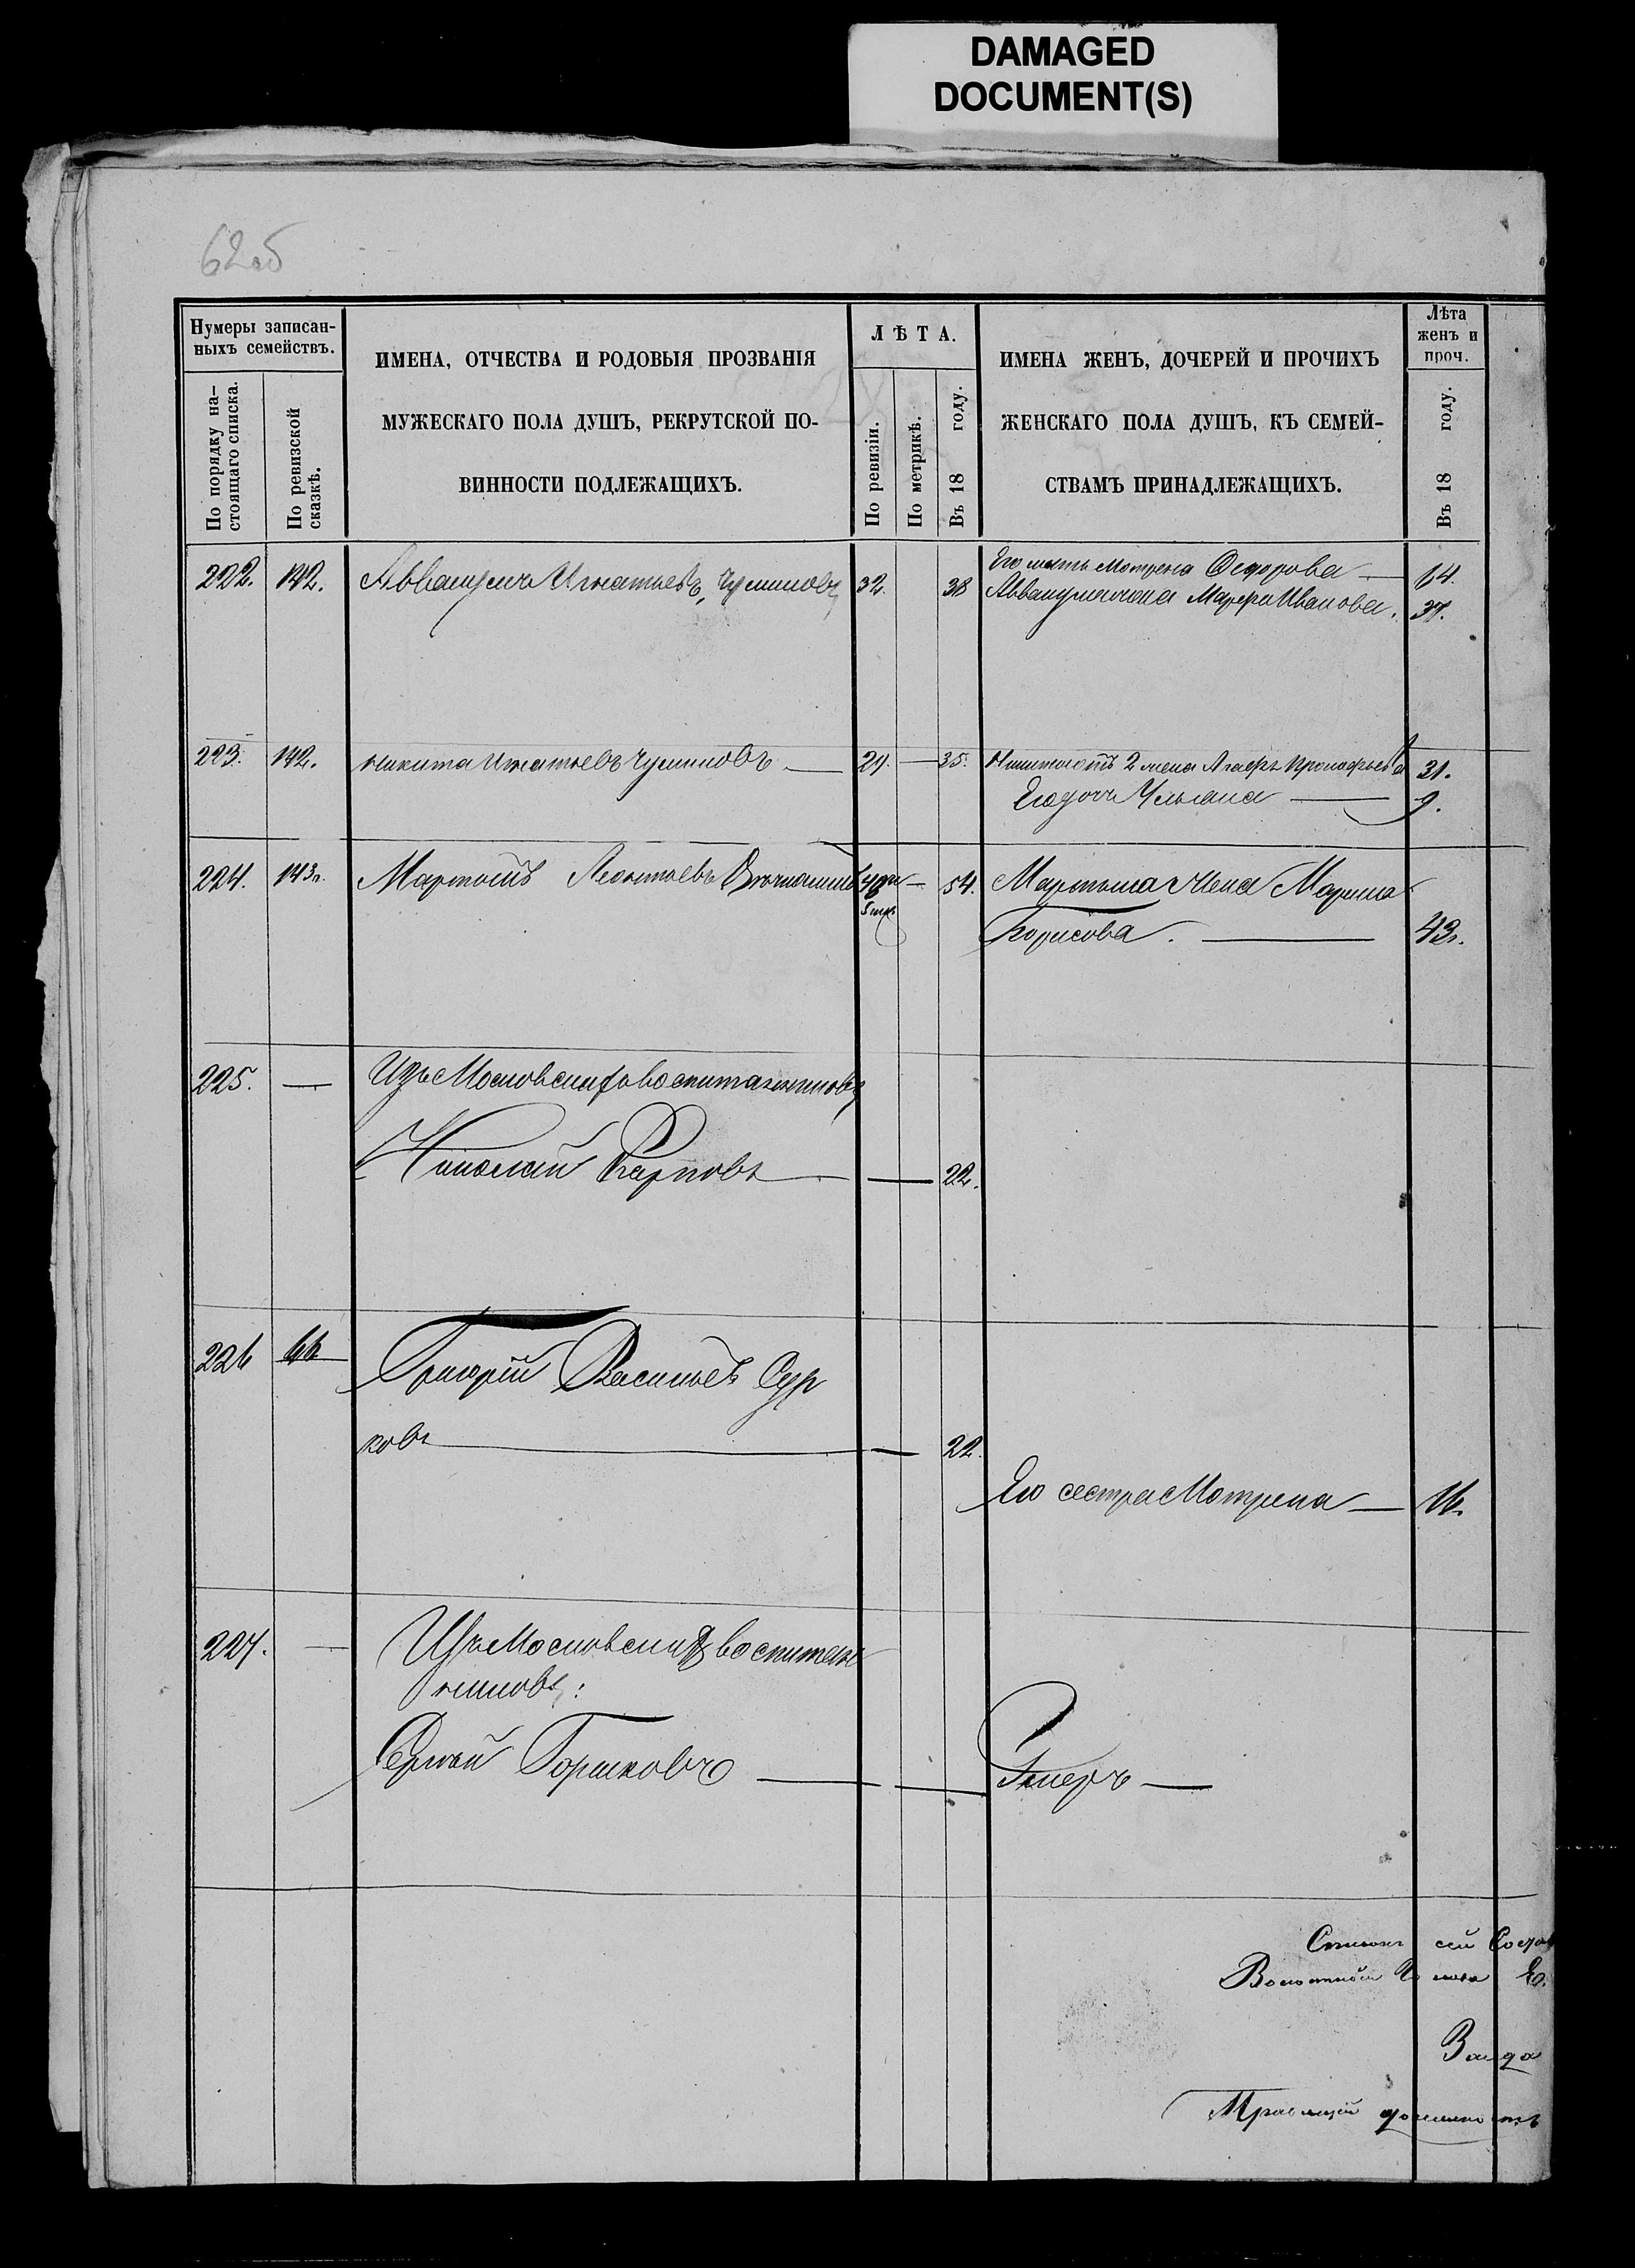 DAMAGED
DOCUMENT(S)
62об
Нумеры записан-
ныхъ семействъ.
По порядку на-
стоящаго списка.
По ревизской
сказкѣ.
ИМЕНА, ОТЧЕСТВА И РОДОВЫЯ ПРОЗВАНІЯ
МУЖЕСКАГО ПОЛА ДУШЪ, РЕКРУТСКОЙ ПО-
ВИННОСТИ ПОДЛЕЖАЩИХЪ.
ЛѢТА.
По ревизіи.
По метрикѣ.
Въ 18 году.
ИМЕНА ЖЕНЪ, ДОЧЕРЕЙ И ПРОЧИХЪ
ЖЕНСКАГО ПОЛА ДУШЪ, КЪ СЕМЕЙ-
СТВАМЪ ПРИНАДЛЕЖАЩИХЪ.
Лѣта
женъ и
проч.
Въ 18 году.
222. 142. Аввакумъ Игнатьевъ, Чуминовъ 32. 38 Его мать Мотрена Федорова — 64.
Аввакума жена Марфа Иванова. 37.
223. 142. Никита Игнатьевъ Чуминовъ — 29. — 35. Никиты отъ 2 жена Агафья Прокофьева 31.
Его дочь Ульяна — 9.
224. 143. Мартынъ Леонтьевъ 48 — 54. Мартына жена Марина
Борисова. — 43.
225. — Изъ Московскихъ воспитанниковъ
Николай Карповъ — 22.
226 66 Григорій Васильевъ Сур
ковъ — 22.
Его сестра Мотрена — 16.
227. — Изъ Московскихъ воспитан
никовъ:
Сергей Горшковъ — Умеръ —
Списокъ сей Состав
Волостной Голова